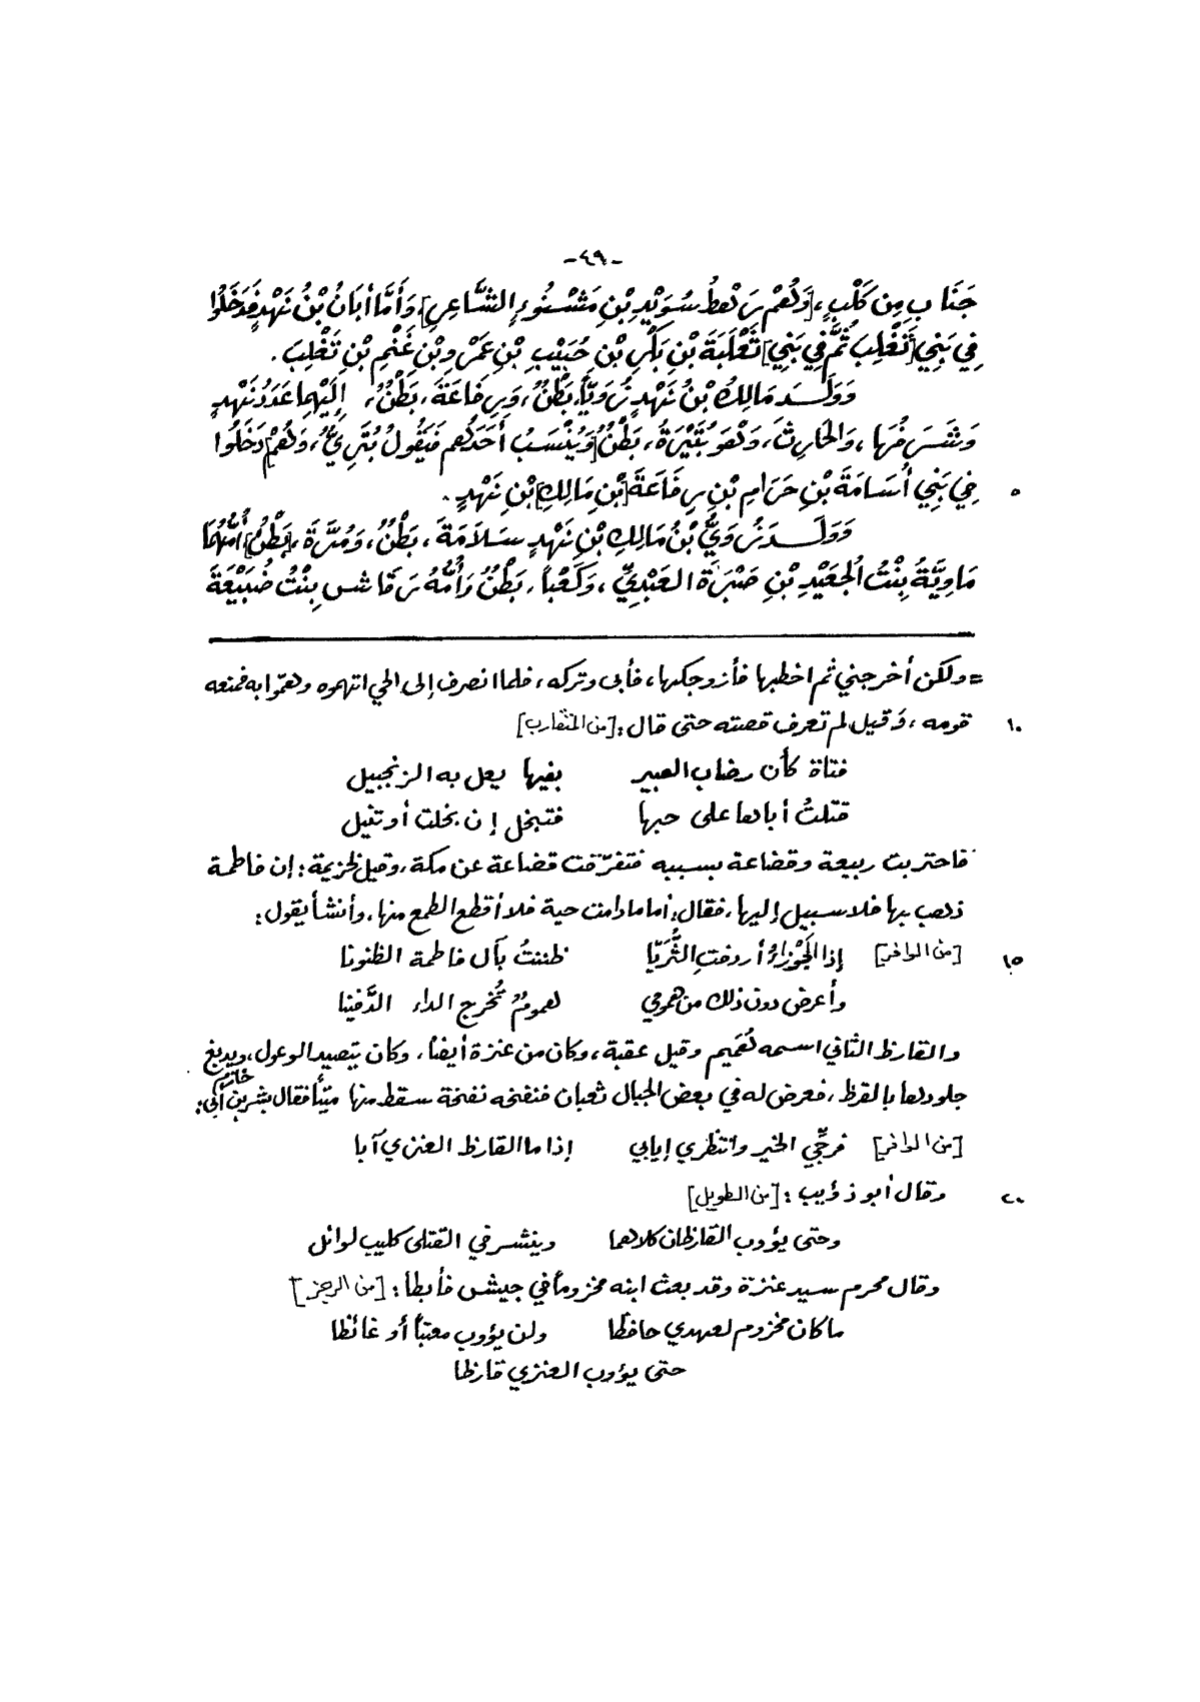 -٤٩-
جَنَابٍ مِن كَلْبٍ، [وَهُمْ رَهْطُ سُوَيْدِ بْنِ مَشْنُوءٍ الشَّاعِرِ]، وَأَمَّا أَبَانُ بْنُ نَهْدٍ فَدَخَلُوا
فِي بَنِي [تَغْلِبَ ثُمَّ فِي بَنِي] ثَعْلَبَةَ بْنِ بَكْرِ بْنِ حُبَيْبِ بْنِ عَمْرِو بْنِ غَنْمِ بْنِ تَغْلِبَ.
وَوَلَدَ مَالِكُ بْنُ نَهْدٍ زُوَيّاً، بَطْنٌ، وَرِفَاعَةَ، بَطْنٌ، إِلَيْهِمَا عَدَدُ نَهْدٍ
وَشَرَفُهَا، وَالحَارِثَ، وَهُوَ بُتَيْرَةُ، بَطْنٌ [وَيُنْسَبُ أَحَدُهُم فَيَقُولُ بُتَرِيٌّ، وَهُمْ] دَخَلُوا
فِي بَنِي أُسَامَةَ بْنِ حَرَامِ بْنِ رِفَاعَةَ [بْنِ مَالِكِ] بْنِ نَهْدٍ. ٥
وَوَلَدَ زُوَيُّ بْنُ مَالِكِ بْنِ نَهْدٍ سَلَامَةَ، بَطْنٌ، وَمُرَّةَ، [بَطْنٌ] أُمُّهُمَا
مَاوِيَّةُ بِنْتُ الجُعَيْدِ بْنِ صَبْرَةَ العَبْدِيِّ، وَكَعْباً، بَطْنٌ وَأُمُّهُ رَقَاشِ بِنْتُ ضُبَيْعَةَ
= ولكن أخرجني ثم اخطبها فأزوجكها، فأبى وتركه، فلما انصرف إلى الحي اتهموه وهمّوا به فمنعه
قومه، وَقيل لم تعرف قصته حتى قال: [من المتقارب] ١٠
فتاة كأن رضاب العبير بفيها يعل به الزنجبيل
قتلتُ أباها على حبها فتبخل إن بخلت أو تنيل
فاحتربت ربيعة وقضاعة بسببه فتفرّقت قضاعة عن مكة، وقيل لخزيمة: إن فاطمة
ذهب بها فلا سبيل إليها، فقال: أما ما دامت حية فلا أقطع الطمع منها، وأنشأ يقول:
[من الوافر] إذا الجَوْزاءُ أردفتِ الثُّرَيّا ظننتُ بآل فاطمة الظنونا ١٥
وأعرض دون ذلك من همومي همومٌ تُخرج الداء الدَّفينا
والقارظ الثاني اسمه هُميم وقيل عقبة، وكان من عنزة أيضاً، وكان يتصيد الوعول، ويدبغ
جلودها بالقرظ، فعرض له في بعض الجبال ثعبان فنفخه نفخة سقط منها ميتاً فقال بشر بن أبي خازم:
[من الوافر] فرجِّي الخير وانتظري إيابي إذا ما القارظ العنزي آبا
وقال أبو ذؤيب: [من الطويل] ٢٠
وحتى يؤوب القارظان كلاهما وينشر في القتلى كليب لوائل
وقال محرم سيد عنزة وقد بعث ابنه مخزوماً في جيش فأبطأ: [من الرجز]
ما كان مخزوم لعهدي حافظا ولن يؤوب معتباً أو غائظا
حتى يؤوب العنزي قارظا